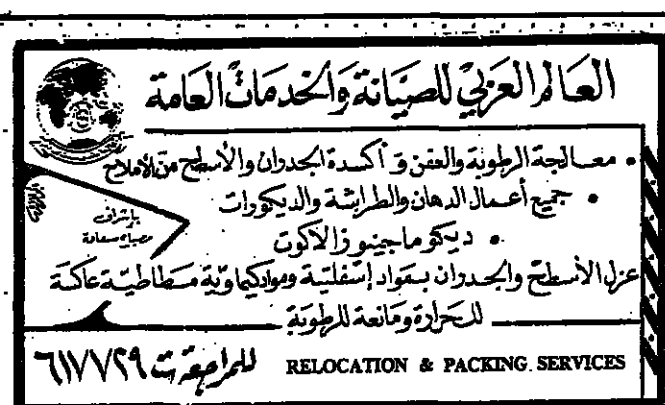 العالم العربي للصيانة والخدمات العامة
• معالجة الرطوبة والعفن و أكسدة الجدران والأسطح من الأملاح
• جميع أعمال الدهان والطراشة والديكورات
• ديكو ماجينو ز الاكوت
باشراف
مصباح سعادة
عزل الأسطح والجدران بمواد إسفلتية ومواد كيماوية مطاطية عاكسة
للحرارة ومانعة للرطوبة
للمراجعة ت ٦١٧٧٢٩
RELOCATION & PACKING SERVICES